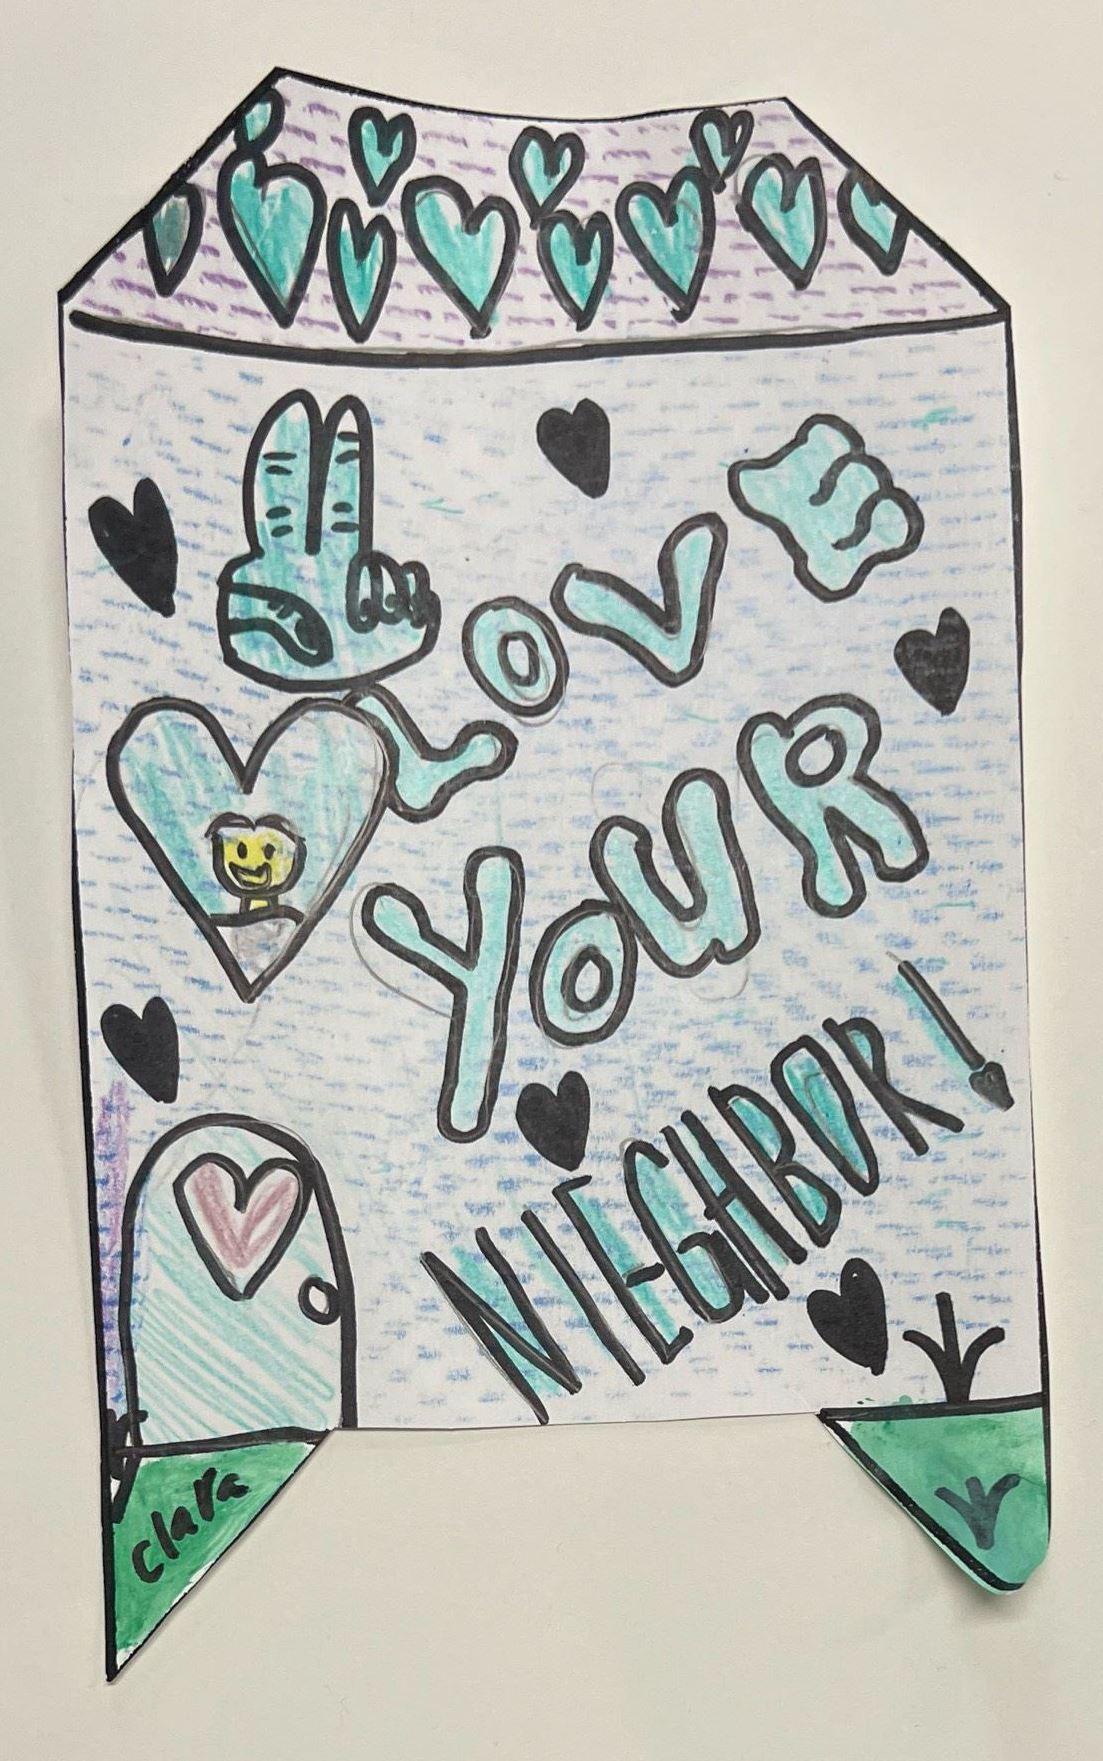 LOVE
YOUR
NIEGHBOR!
clara